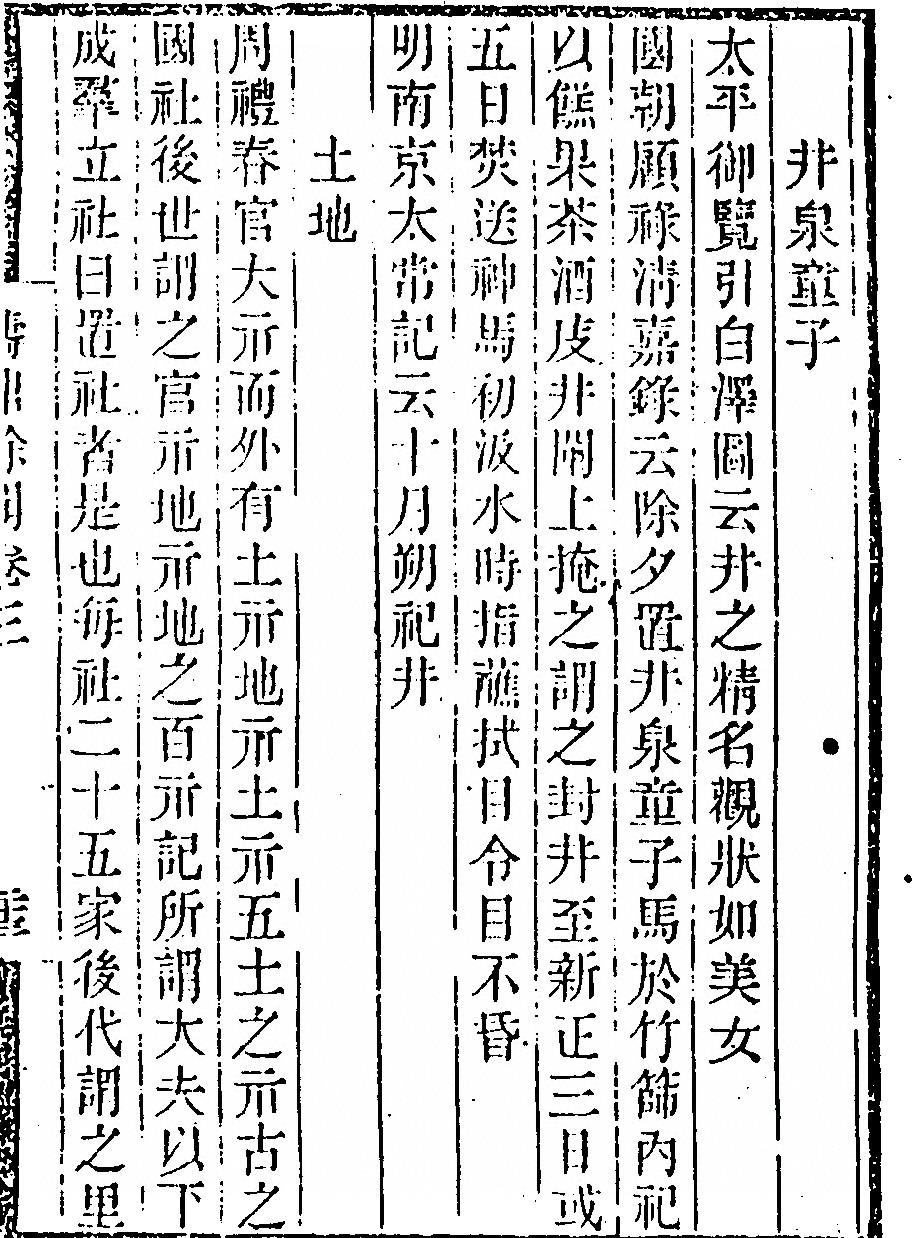 井泉童子
太平御覽引白澤圖云井之精名觀狀如美女
國朝顧祿淸嘉錄云除夕置井泉童子馬於竹篩內祀
以餻果茶酒庋井闌上掩之謂之封井至新正三日或
五日焚送神馬初汲水時指蘸拭目令目不昏
明南京太常記云十月朔祀井
土地
周禮春官大示而外有土示地示土示五土之示古之
國社後世謂之官示地示地之百示記所謂大夫以下
成羣立社曰置社者是也每社二十五家後代謂之里
壽鼎餘聞卷三